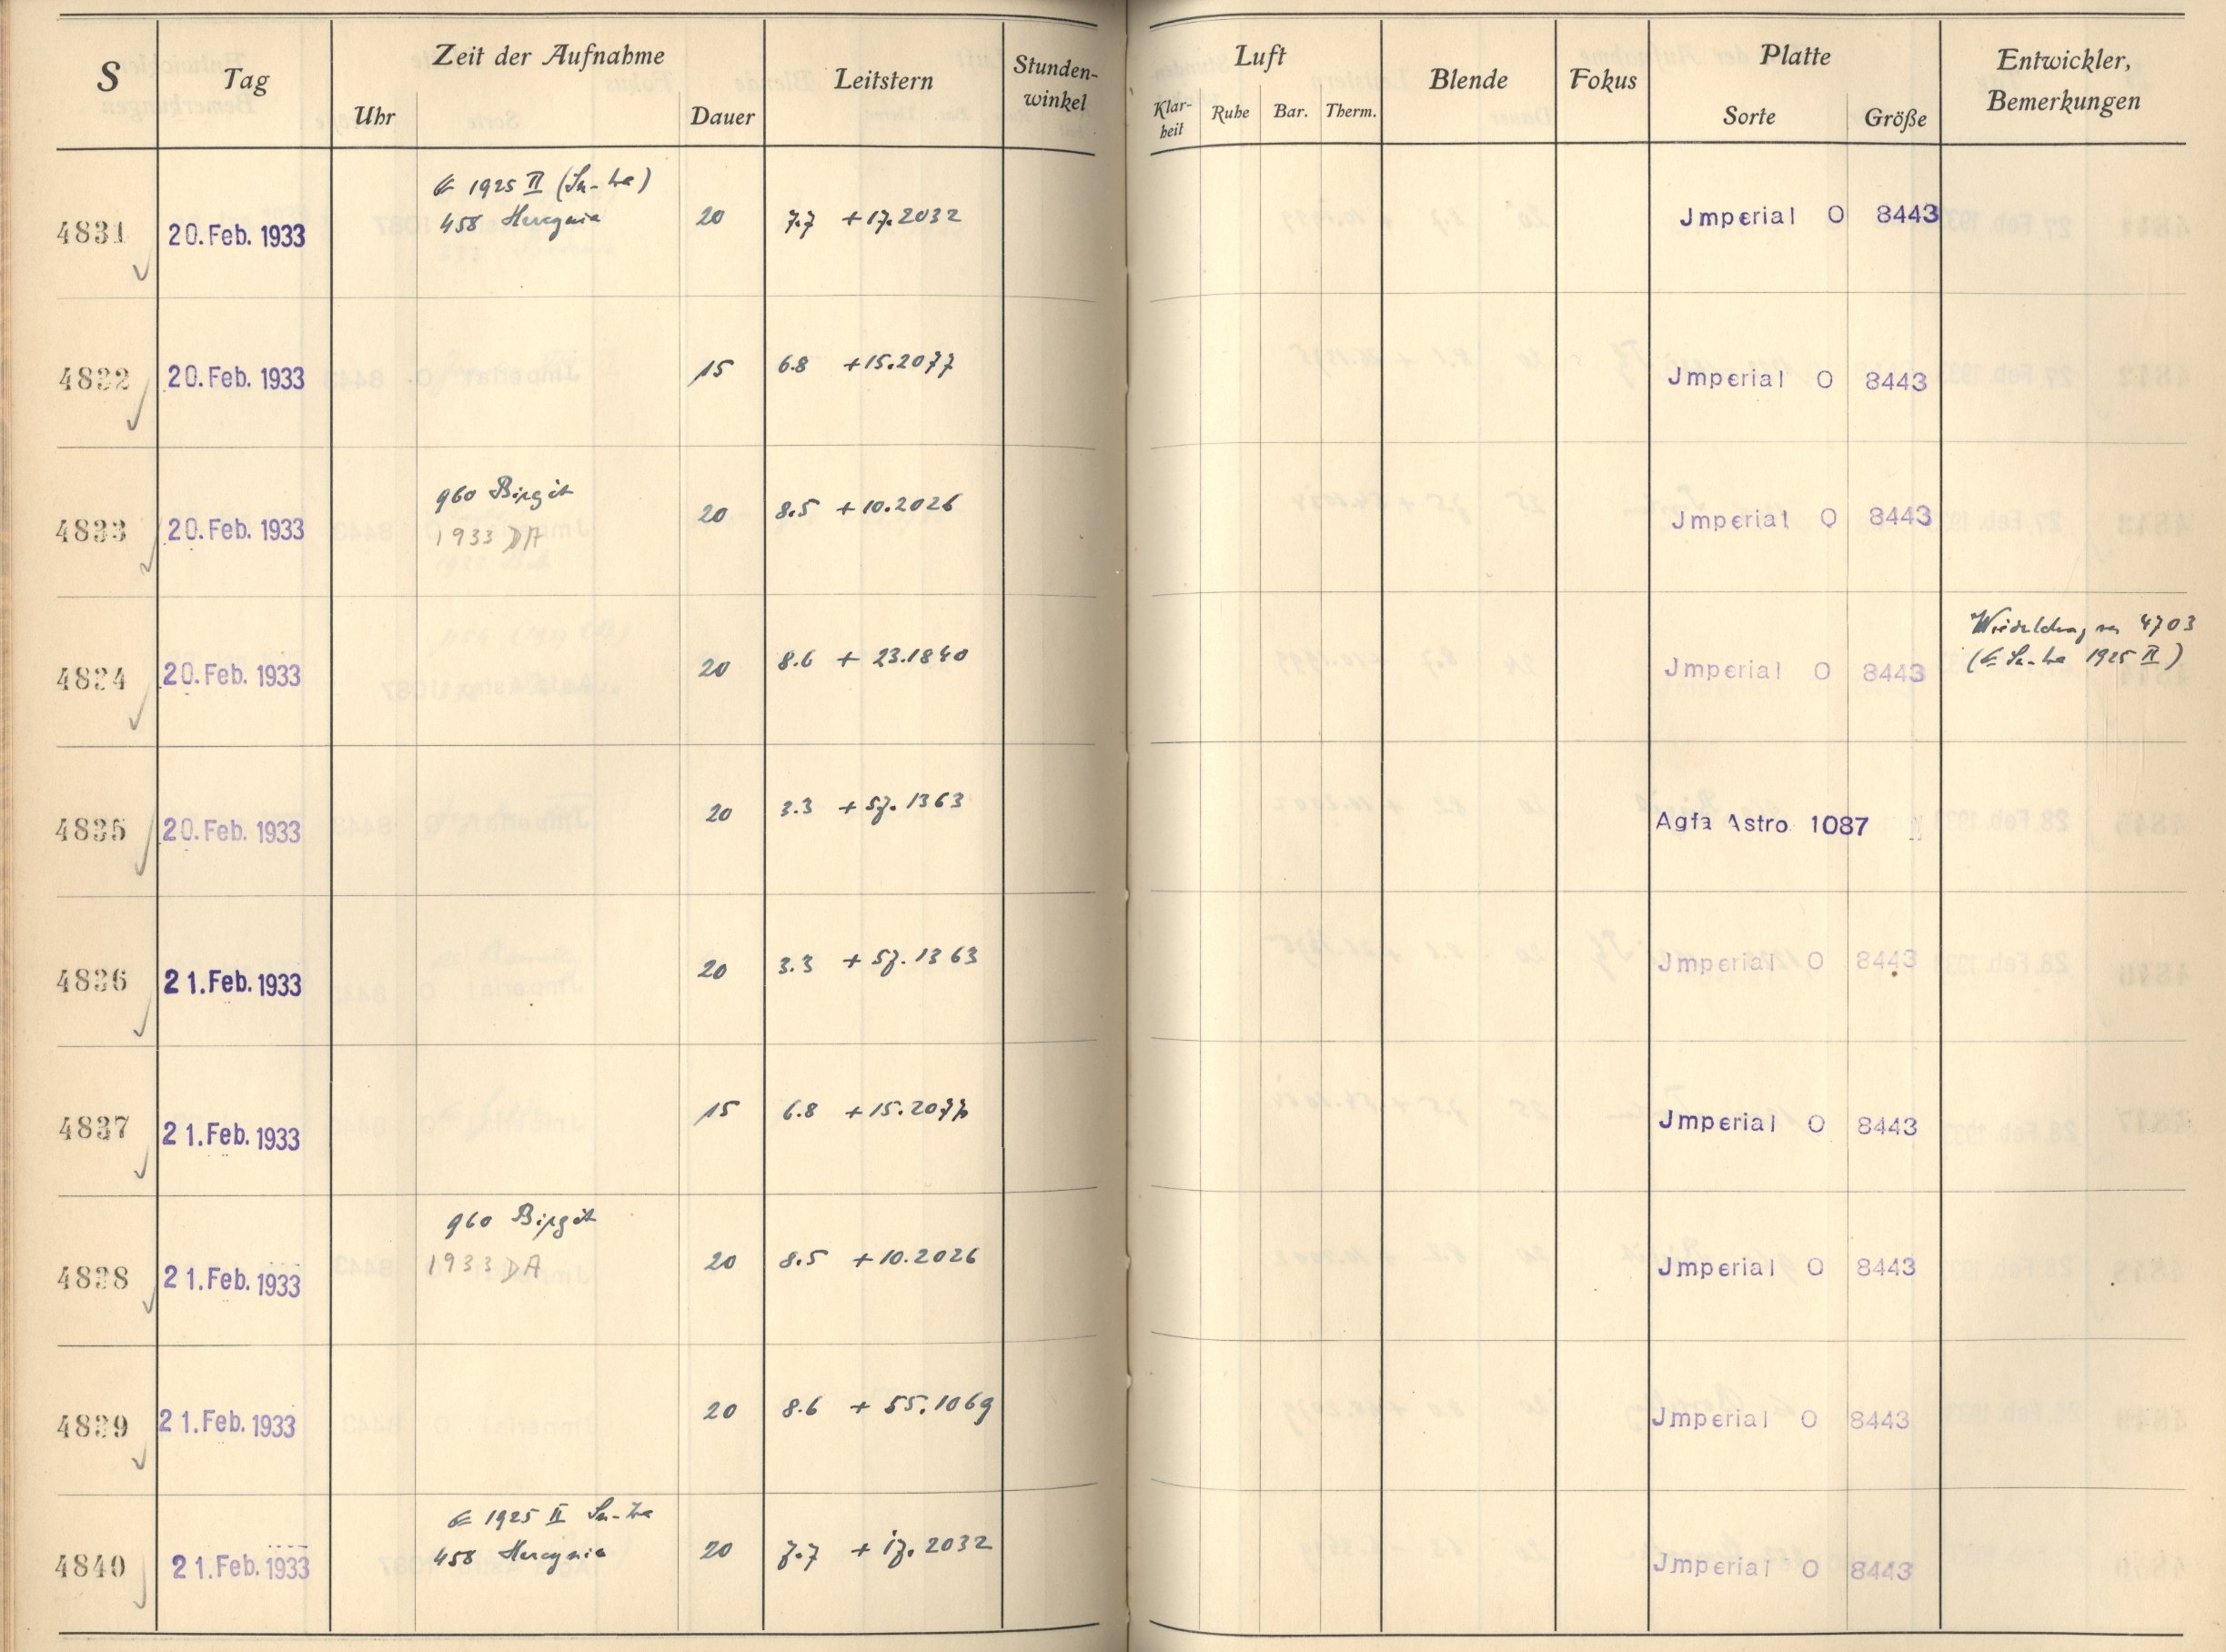 S Tag Zeit der Aufnahme Leitstern Stunden-winkel Luft Blende Fokus Platte Entwickler, Bemerkungen
Uhr Dauer Klar-heit Ruhe Bar. Therm. Sorte Größe
1925 II
4831 20. Feb. 1933 458 Hercynia 20 7.7 +17.2032 Jmperial O 8443
4832 20. Feb. 1933 15 6.8 +15.2077 Jmperial O 8443
960 Birgit
4833 20. Feb. 1933 1933 DA 20 8.5 +10.2026 Jmperial O 8443
4834 20. Feb. 1933 20 8.6 +23.1840 Jmperial O 8443 4703
1925 II
4835 20. Feb. 1933 20 3.3 +57.1363 Agfa Astro 1087
4836 21. Feb. 1933 20 3.3 +57.1363 Jmperial O 8443
4837 21. Feb. 1933 15 6.8 +15.2077 Jmperial O 8443
960 Birgit
4838 21. Feb. 1933 1933 DA 20 8.5 +10.2026 Jmperial O 8443
4839 21. Feb. 1933 20 8.6 +55.1069 Jmperial O 8443
1925 II
4840 21. Feb. 1933 458 Hercynia 20 7.7 +17.2032 Jmperial O 8443